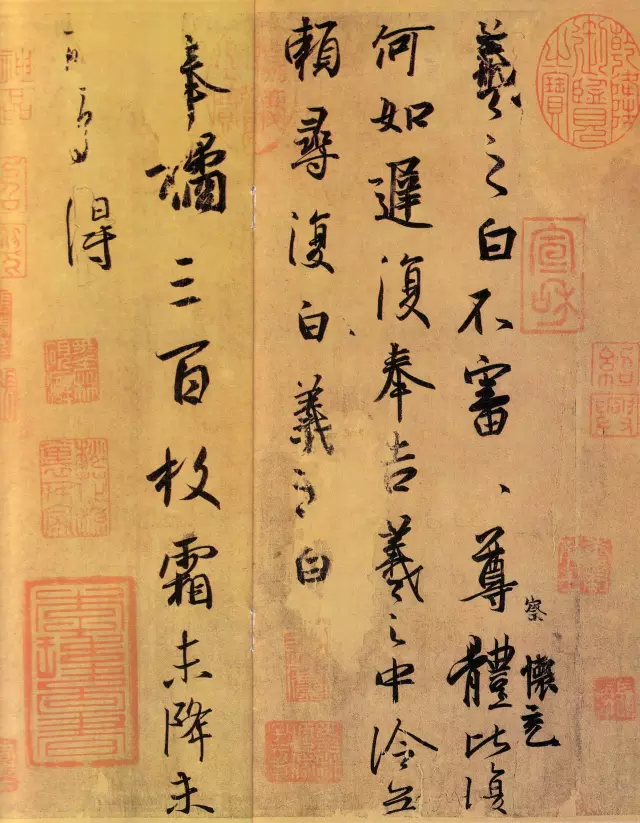 羲之白不審、尊體比復
察
懷充
何如遲復奉告羲之中冷無
賴尋復白、羲之白
奉橘三百枚霜未降未
可多得
乾隆御覽之寶
宣和
紹興